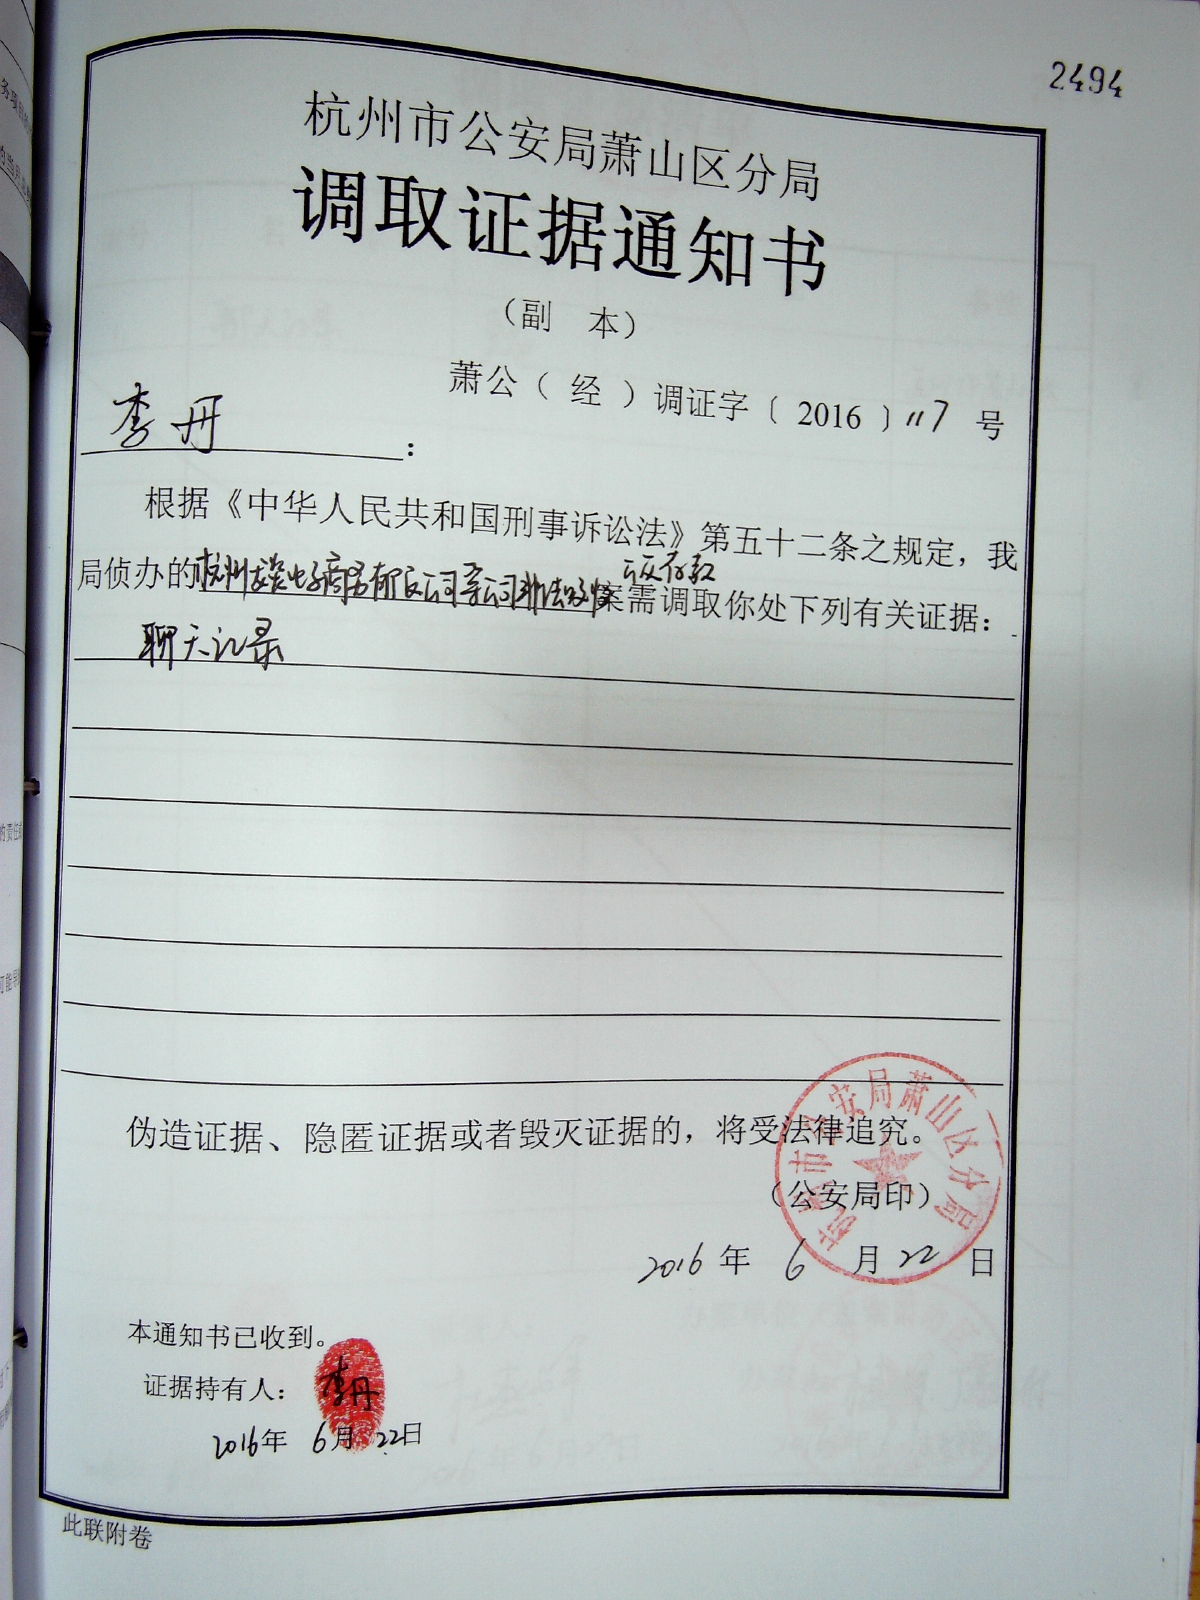 2494
杭州市公安局萧山区分局
调取证据通知书
（副 本）
萧公（经）调证字〔2016〕117号
李丹：
根据《中华人民共和国刑事诉讼法》第五十二条之规定，我
众存款
局侦办的杭州 电子商务有限公司 公司非法吸收案需调取你处下列有关证据：
聊天记录
伪造证据、隐匿证据或者毁灭证据的，将受法律追究。
杭州市公安局萧山区分局
（公安局印）
2016年6月22日
本通知书已收到。
证据持有人：李丹
2016年6月22日
此联附卷